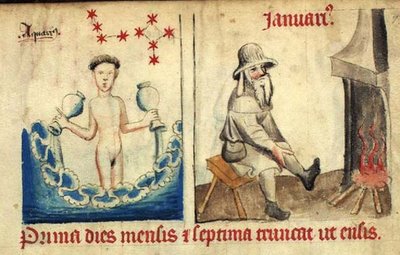 Aquari⁹
Januari⁹.
Prima dies mensis & septima truncat ut ensis.